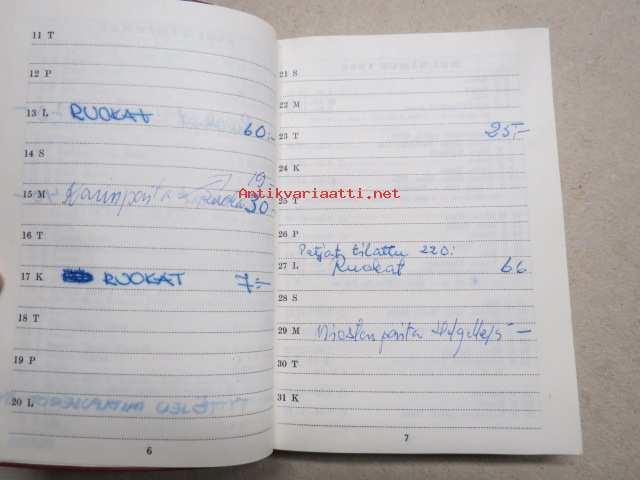 11 T
12 P
13 L RUOKAT 60:-
14 S
19:-
15 M 30:-
16 T
17 K RUOKAT 7:-
18 T
19 P
20 L
6
21 S
22 M
23 T 25:-
24 K
25 T
26 P
Patjat tilattu 220:
27 L Ruokat 66
28 S
29 M
30 T
31 K
7
Antikvariaatti.net